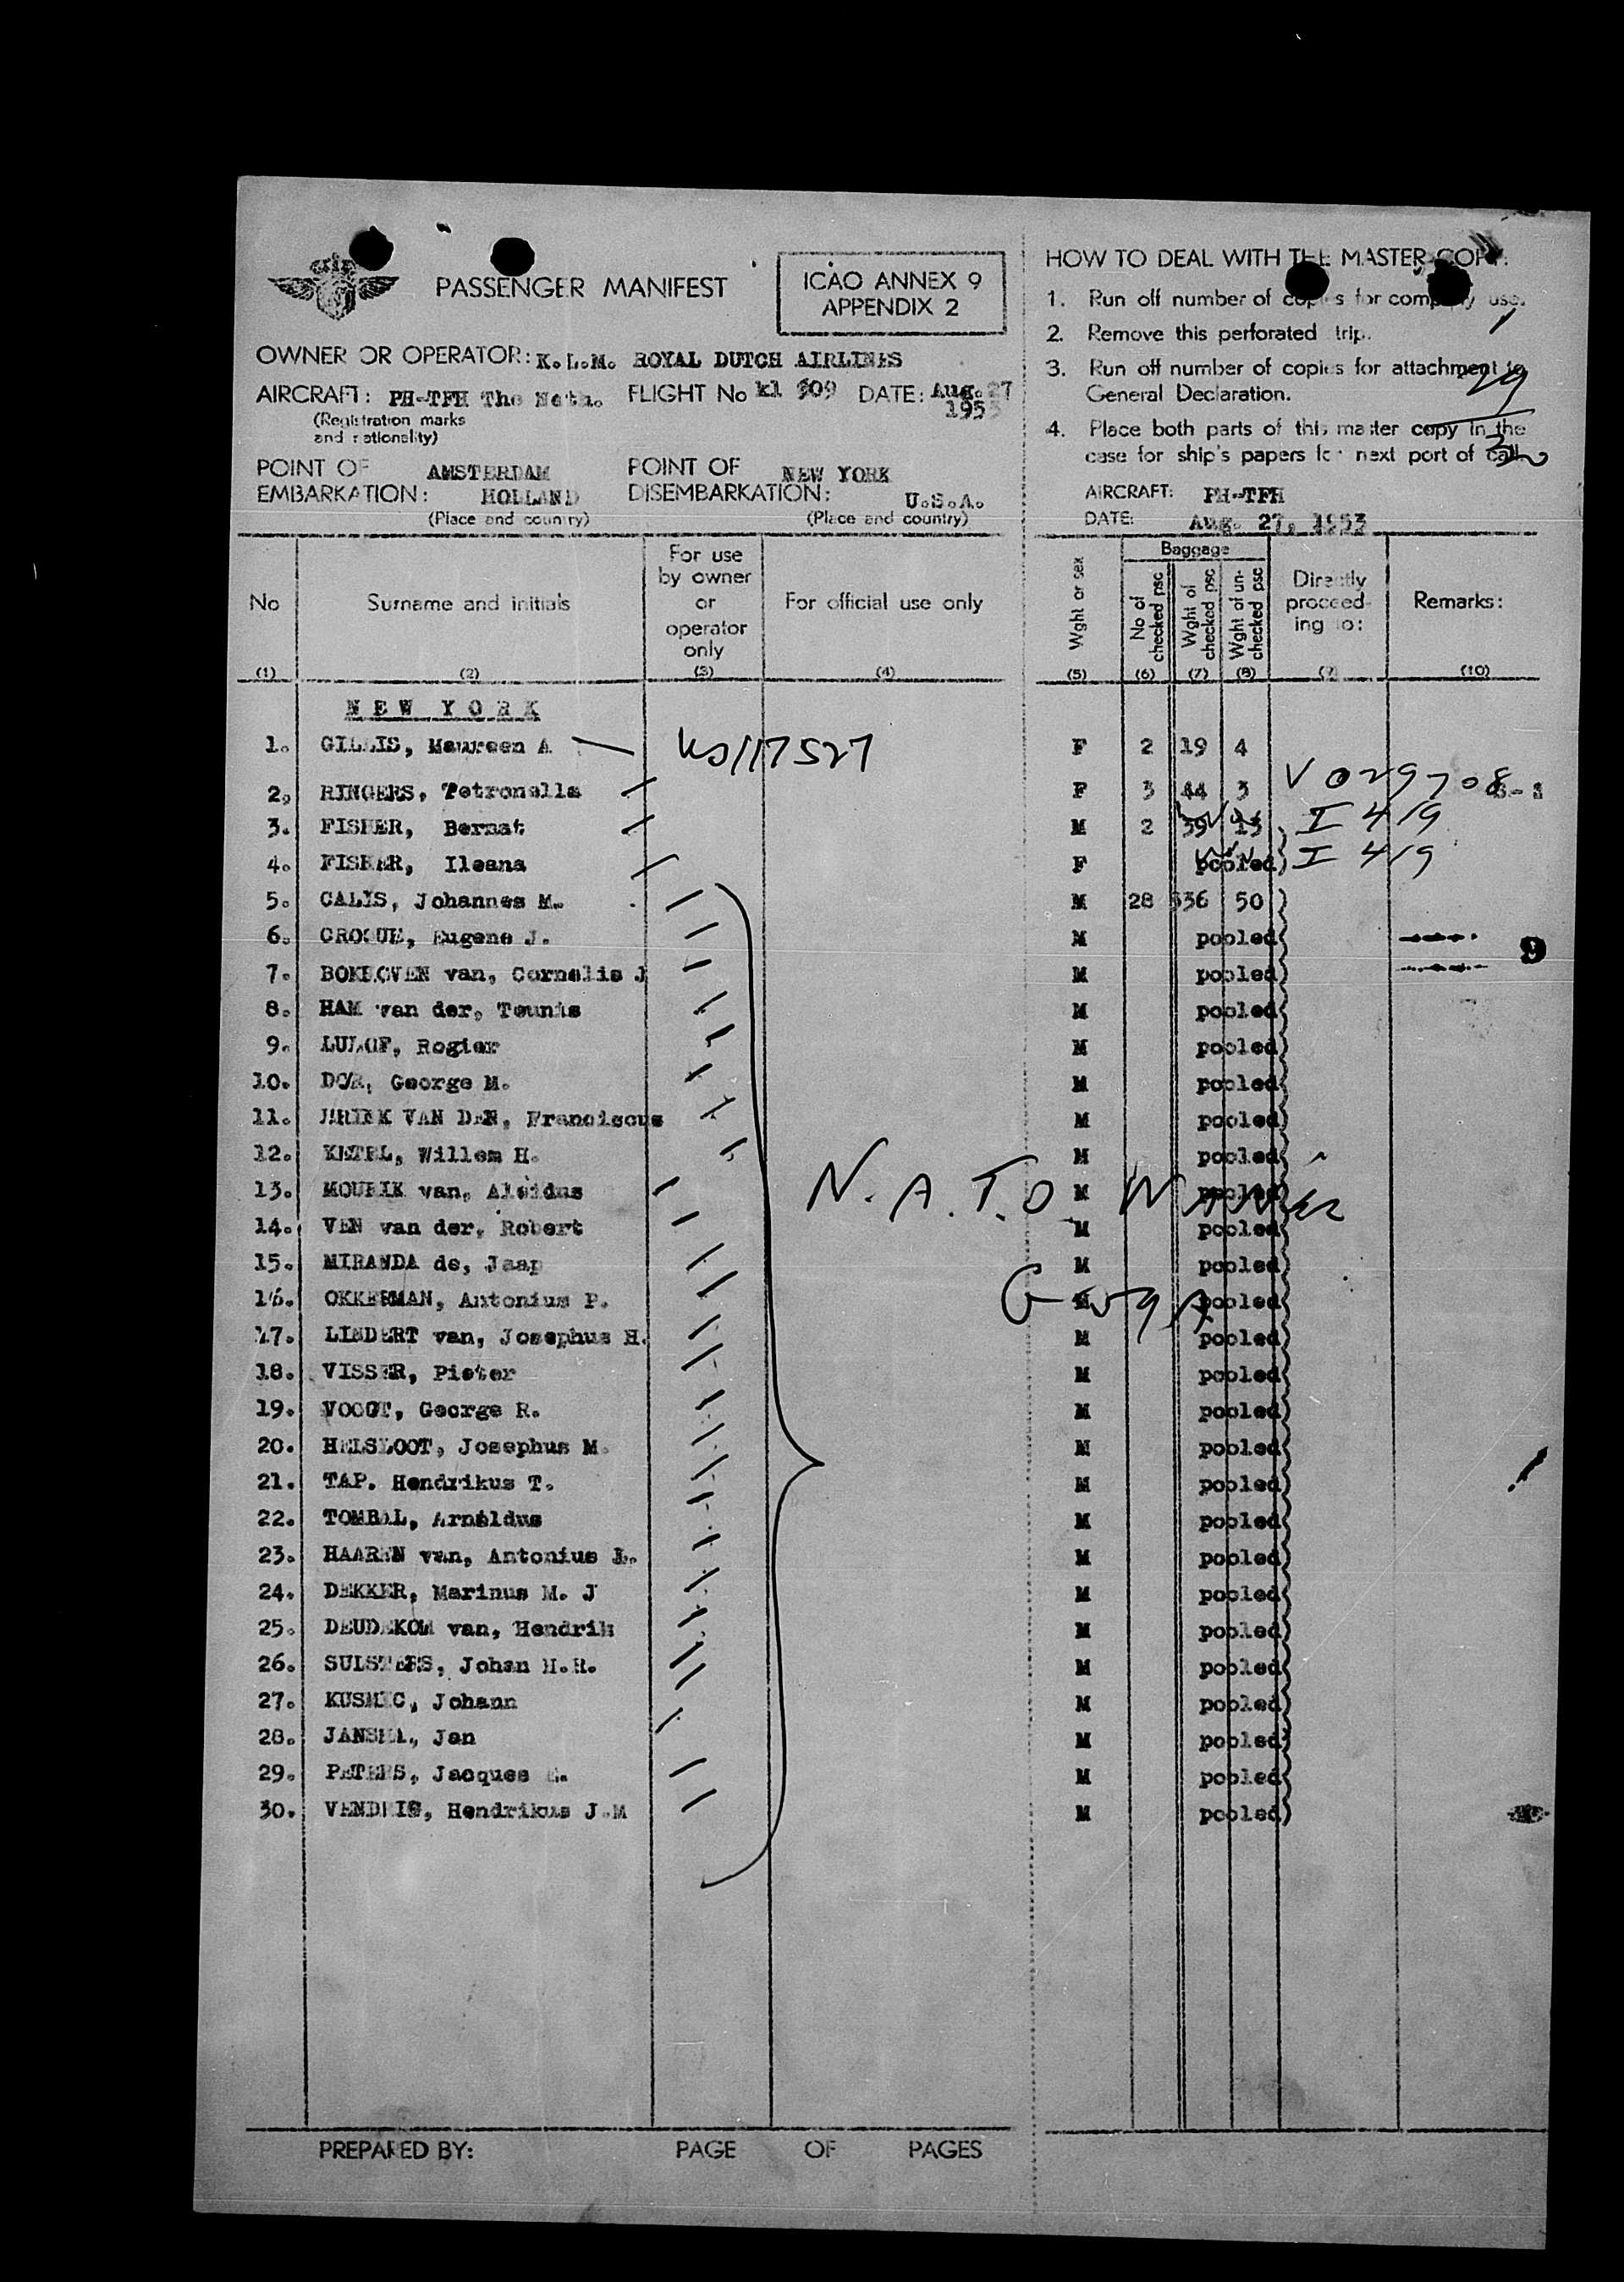 PASSENGER MANIFEST
ICAO ANNEX 9
APPENDIX 2
OWNER OR OPERATOR: K.L.M. ROYAL DUTCH AIRLINES
AIRCRAFT: PH-TFH The Neth. FLIGHT No kl 609 DATE: Aug. 27
1953
(Registration marks
and nationality)
POINT OF AMSTERDAM POINT OF NEW YORK
EMBARKATION: HOLLAND DISEMBARKATION: U.S.A.
(Place and country) (Place and country)
HOW TO DEAL WITH THE MASTER COPY:
1. Run off number of copies for company use.
2. Remove this perforated trip.
3. Run off number of copies for attachment to
General Declaration.
4. Place both parts of this master copy in the
case for ship's papers for next port of call.
29
AIRCRAFT: PH-TFH
DATE: Aug. 27, 1953
No
Surname and initials
For use
by owner
or
operator
only
For official use only
Wght or sex
Baggage
No of
checked psc
Wght of
checked psc
Wght of un-
checked psc
Directly
proceed-
ing to:
Remarks:
(1) (2) (3) (4) (5) (6) (7) (8) (9) (10)
NEW YORK
1. GILLIS, Maureen A F 2 19 4
2. RINGERS, Petronella F 3 44 3 V 029708
3. FISHER, Bernat M 2 39 13 ) I 419
4. FISHER, Ileana F pooled) I 419
5. CALIS, Johannes M. M 28 336 50 )
6. CROQUE, Eugene J. M pooled(
7. BOKHOVEN van, Cornelis J M pooled) 9
8. HAM van der, Teunis M pooled(
9. LULOF, Rogier M pooled)
10. George M. M pooled(
11. VAN DEN, Franciscus M pooled)
12. KETEL, Willem H. M pooled(
13. MOURIK van, Aleidus M pooled
14. VEN van der, Robert M pooled(
15. MIRANDA de, Jaap M pooled)
16. OKKERMAN, Antonius P. M pooled(
17. LINDERT van, Josephus H. M pooled)
18. VISSER, Pieter M pooled(
19. VOOGT, George R. M pooled)
20. HELSLOOT, Josephus M. M pooled(
21. TAP. Hendrikus T. M pooled)
22. TOMBAL, Arnoldus M pooled(
23. HAAREN van, Antonius L. M pooled)
24. DEKKER, Marinus M. J M pooled(
25. DEUDEKOM van, Hendrik M pooled)
26. SULSTERS, Johan H.R. M pooled(
27. KUSMIC, Johann M pooled)
28. Jan M pooled)
29. PETERS, Jacques M pooled(
30. Hendrikus J.M M pooled)
N.A.T.O
PREPARED BY: PAGE OF PAGES